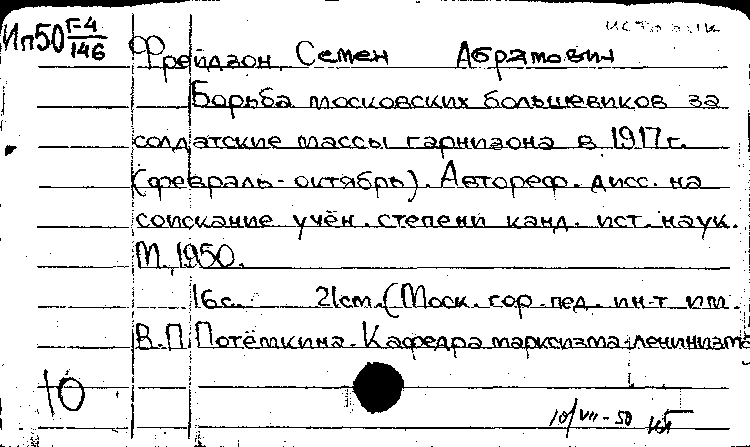 Ип50 Г-4/146
Фрейдзон, Семен Абрамович
Борьба московских большевиков за
солдатские массы гарнизона в 1917 г.
(февраль - октябрь). Автореф. дисс. на
соискание учён. степени канд. ист. наук.
М., 1950.
16 с. 21 см. (Моск. гор. пед. ин-т им.
В.П. Потёмкина. Кафедра марксизма-ленинизма
10
10/VII-50